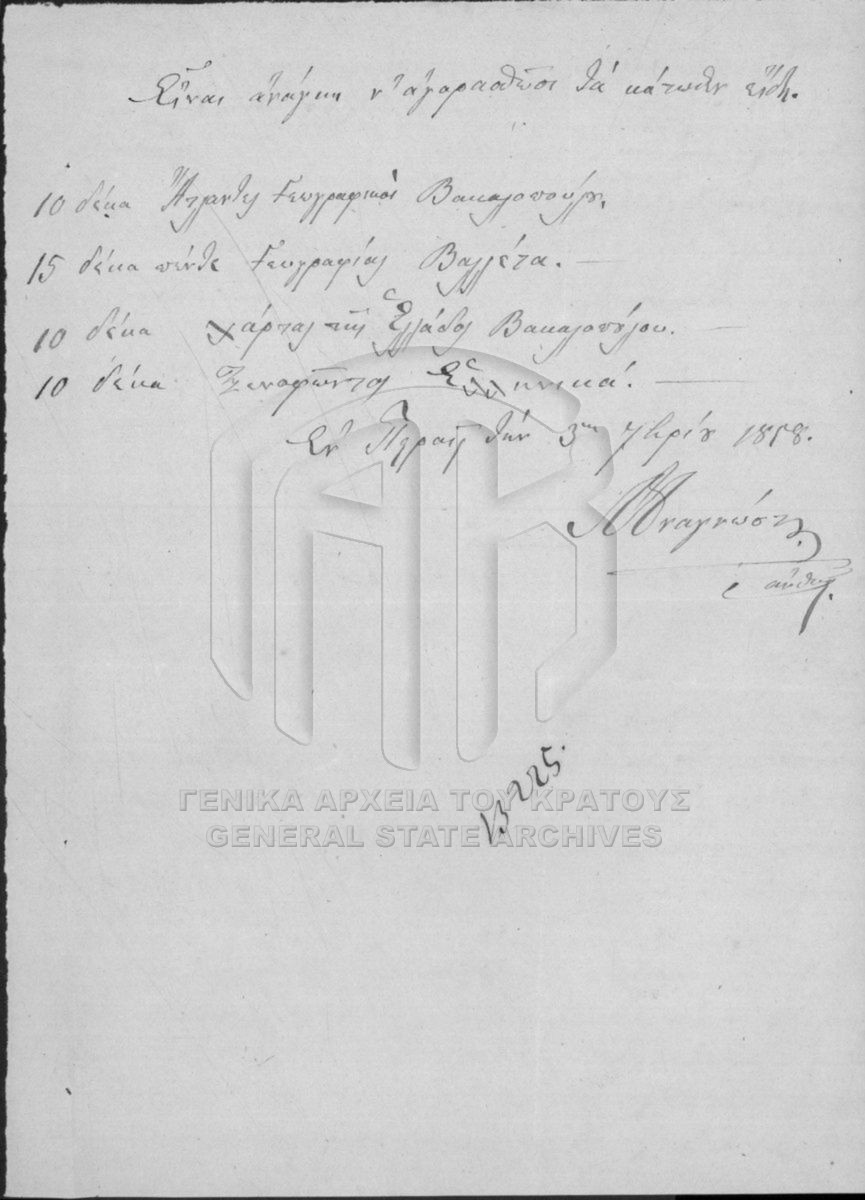 Εἶναι ἀνάγκη ν' ἀγορασθῶσι τὰ κάτωθεν εἴδη.
10 δέκα Ἄτλαντες Γεωγραφικοὶ Βακαλοπούλου.
15 δέκα πέντε Γεωγραφίας Βαλλέτα. —
10 δέκα χάρτας τῆς Ἑλλάδος Βακαλοπούλου. —
10 δέκα Ξενοφῶντος Ἑλληνικά. —
Ἐν τὴν 3ην 7βρίου 1858.
13225.
ΓΕΝΙΚΑ ΑΡΧΕΙΑ ΤΟΥ ΚΡΑΤΟΥΣ
GENERAL STATE ARCHIVES